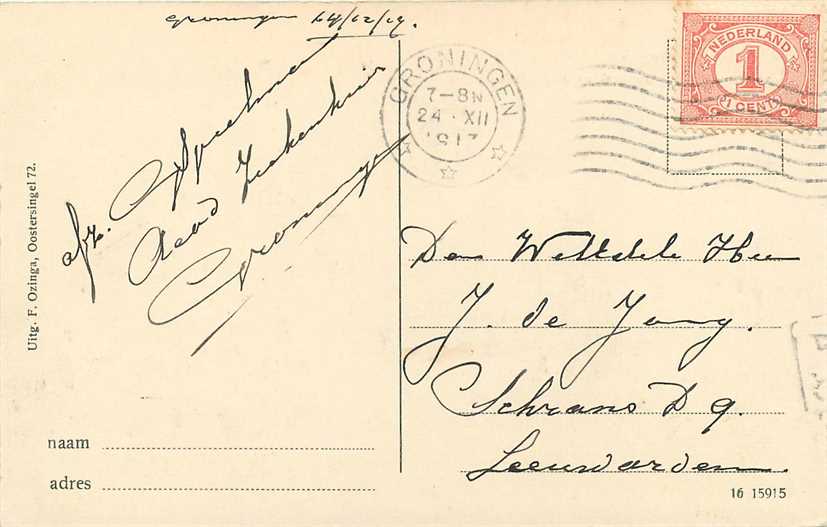 Groningen 24/12/17.
GRONINGEN
7-8N
24 XII
1917
NEDERLAND
1
1 CENT
afz. Speelman
Acad Ziekenhuis
Groningen
Uitg. F. Ozinga, Oostersingel 72.
Den Weledele Heer
J. de Jong.
Schrans D 9.
Leeuwarden
naam
adres
16 15915